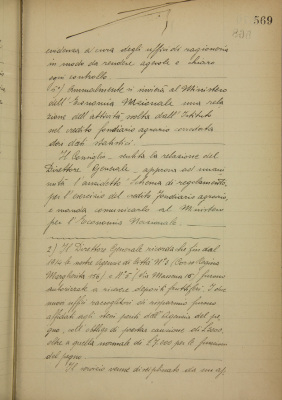 569
evidenza a cura degli uffici di ragioneria
in modo da rendere agevole e chiaro
ogni controllo.
Annualmente si invierà al Ministero
dell'Economia Nazionale una rela
zione dell'attività svolta dall'Istituto
nel credito fondiario agrario corredata
dai dati statistici.
Il Consiglio, sentita la relazione del
Direttore Generale, approva ad unani
mità l'anzidetto schema di regolamento,
per l'esercizio del credito fondiario agrario,
e manda comunicarlo al Ministero
per l'Economia Nazionale.
2) Il Direttore Generale ricorda che fin dal
1914 le nostre Agenzie di città N° 2 (Corso Regina
Margherita 126) e N° 5 (Via 15) furono
autorizzate a ricevere depositi fruttiferi. I due
nuovi uffici raccoglitori di risparmio furono
affidati agli stessi periti dell'esercizio del pe
gno, coll'obbligo di prestar cauzione di Lire
oltre a quella normale di per le funzioni
del pegno.
Il servizio venne disciplinato da un ap